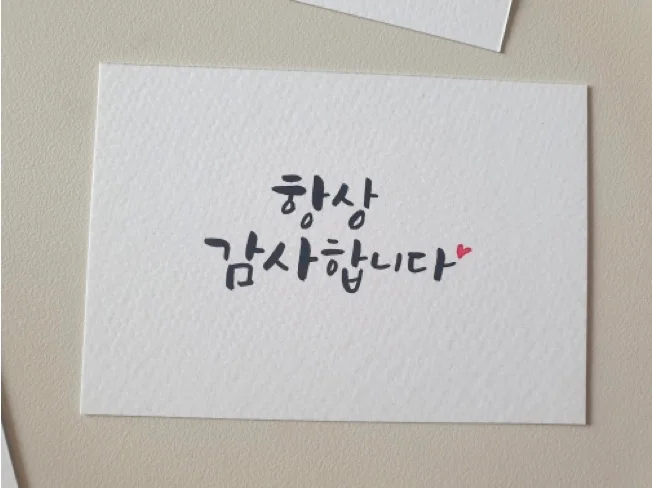 항상
감사합니다